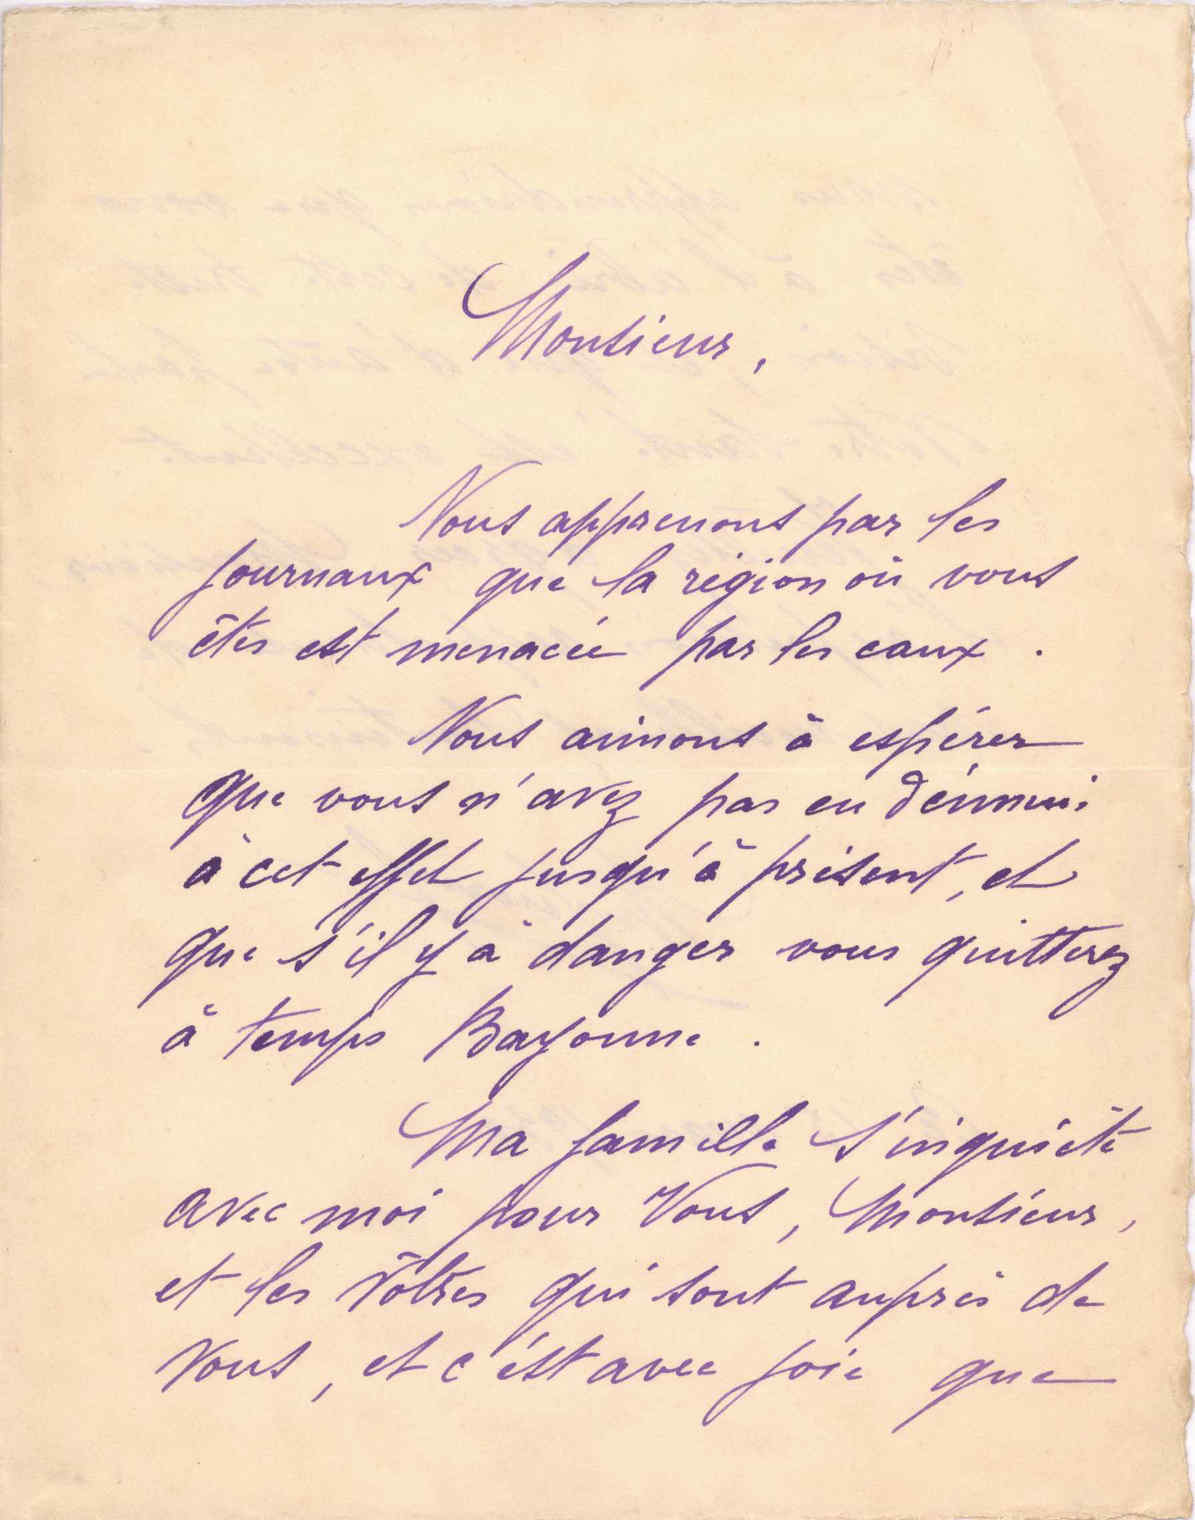 Monsieur,
Nous apprenons par les
journaux que la région où vous
êtes est menacée par les eaux.
Nous aimons à espérer
que vous n'avez pas eu d'ennui
à cet effet jusqu'à présent, et
que s'il y à danger vous quitterez
à temps Bayonne.
Ma famille s'inquiète
avec moi pour Vous, Monsieur,
et les Vôtres qui sont auprès de
Vous, et c'est avec joie que